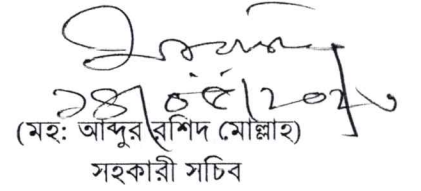 ১৪/০৫/২০২০
(মহ: আব্দুর রশিদ মোল্লাহ)
সহকারী সচিব